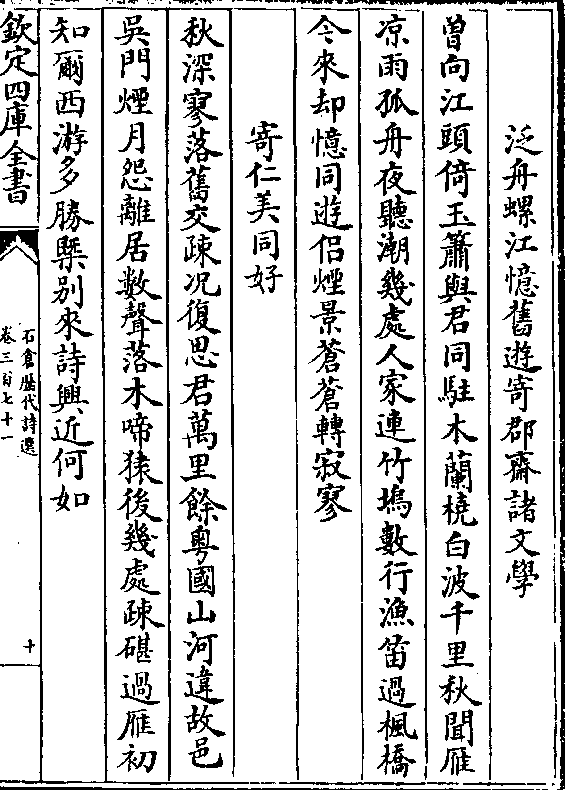 泛舟螺江憶舊遊寄郡齋諸文學
曽向江頭倚玉簫與君同駐木蘭橈白波千里秋聞雁
凉雨孤舟夜聽潮幾處人家連竹塢數行漁笛過楓橋
今來却憶同遊侣煙景蒼蒼轉寂寥
寄仁美同好
秋深寥落舊交疎况復思君萬里餘粤國山河違故邑
吳門煙月怨離居數聲落木啼猿後幾處疎碪過雁初
知爾西游多勝槩别來詩興近何如
欽定四庫全書
石倉歴代詩選
卷三百七十一
十